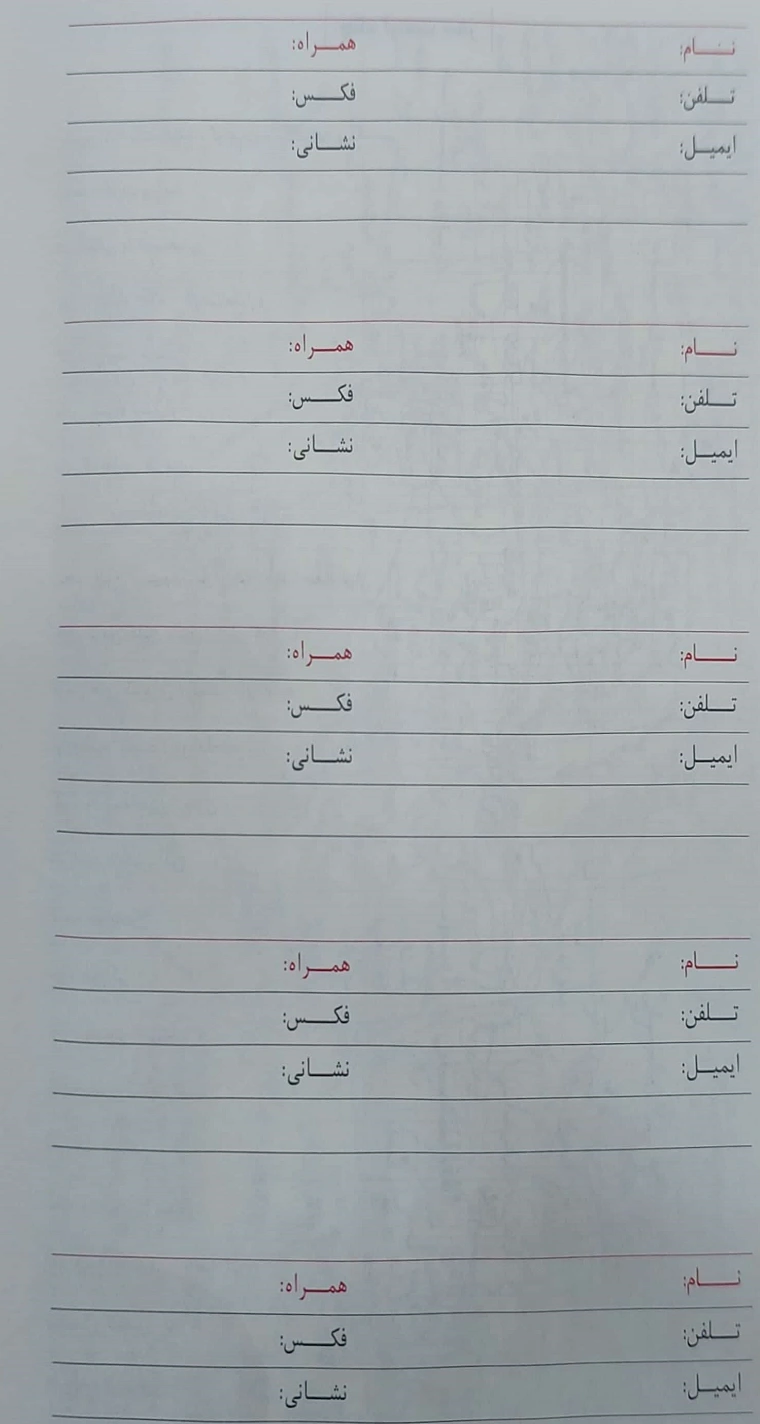 نام: همراه:
تلفن: فکس:
ایمیل: نشانی:
نام: همراه:
تلفن: فکس:
ایمیل: نشانی:
نام: همراه:
تلفن: فکس:
ایمیل: نشانی:
نام: همراه:
تلفن: فکس:
ایمیل: نشانی:
نام: همراه:
تلفن: فکس:
ایمیل: نشانی: